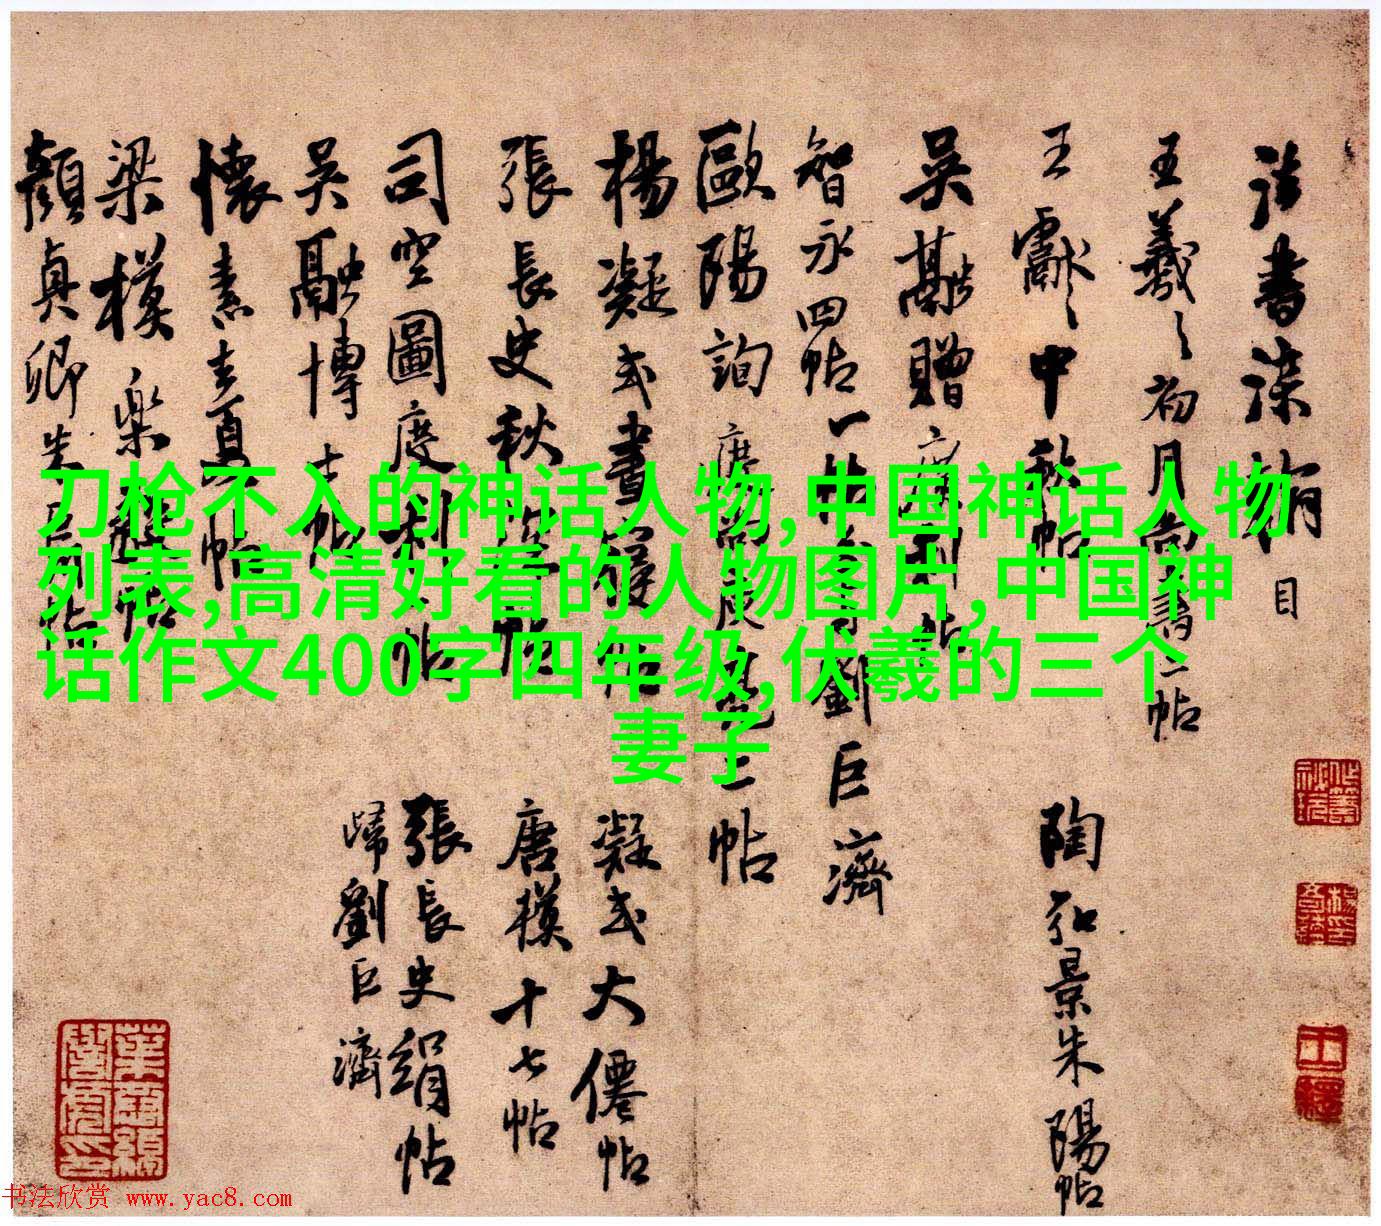 法書染指目
王羲之初月尚書二帖
王獻之中秋帖
陶弘景朱陽帖
吳融贈廣利帖
智永四帖一
劉巨濟
歐陽詢度尚庾亮二帖
楊凝式書
凝式大僊帖
張長史秋
唐模十七帖
司空圖
張長史絹帖
歸劉巨濟
吳融博士帖
懷素
梁模樂
顏真卿朱
刀枪不入的神话人物,中国神话人物
列表,高清好看的人物图片,中国神
话作文400字四年级,伏羲的三个
妻子
书法欣赏 www.yac8.com